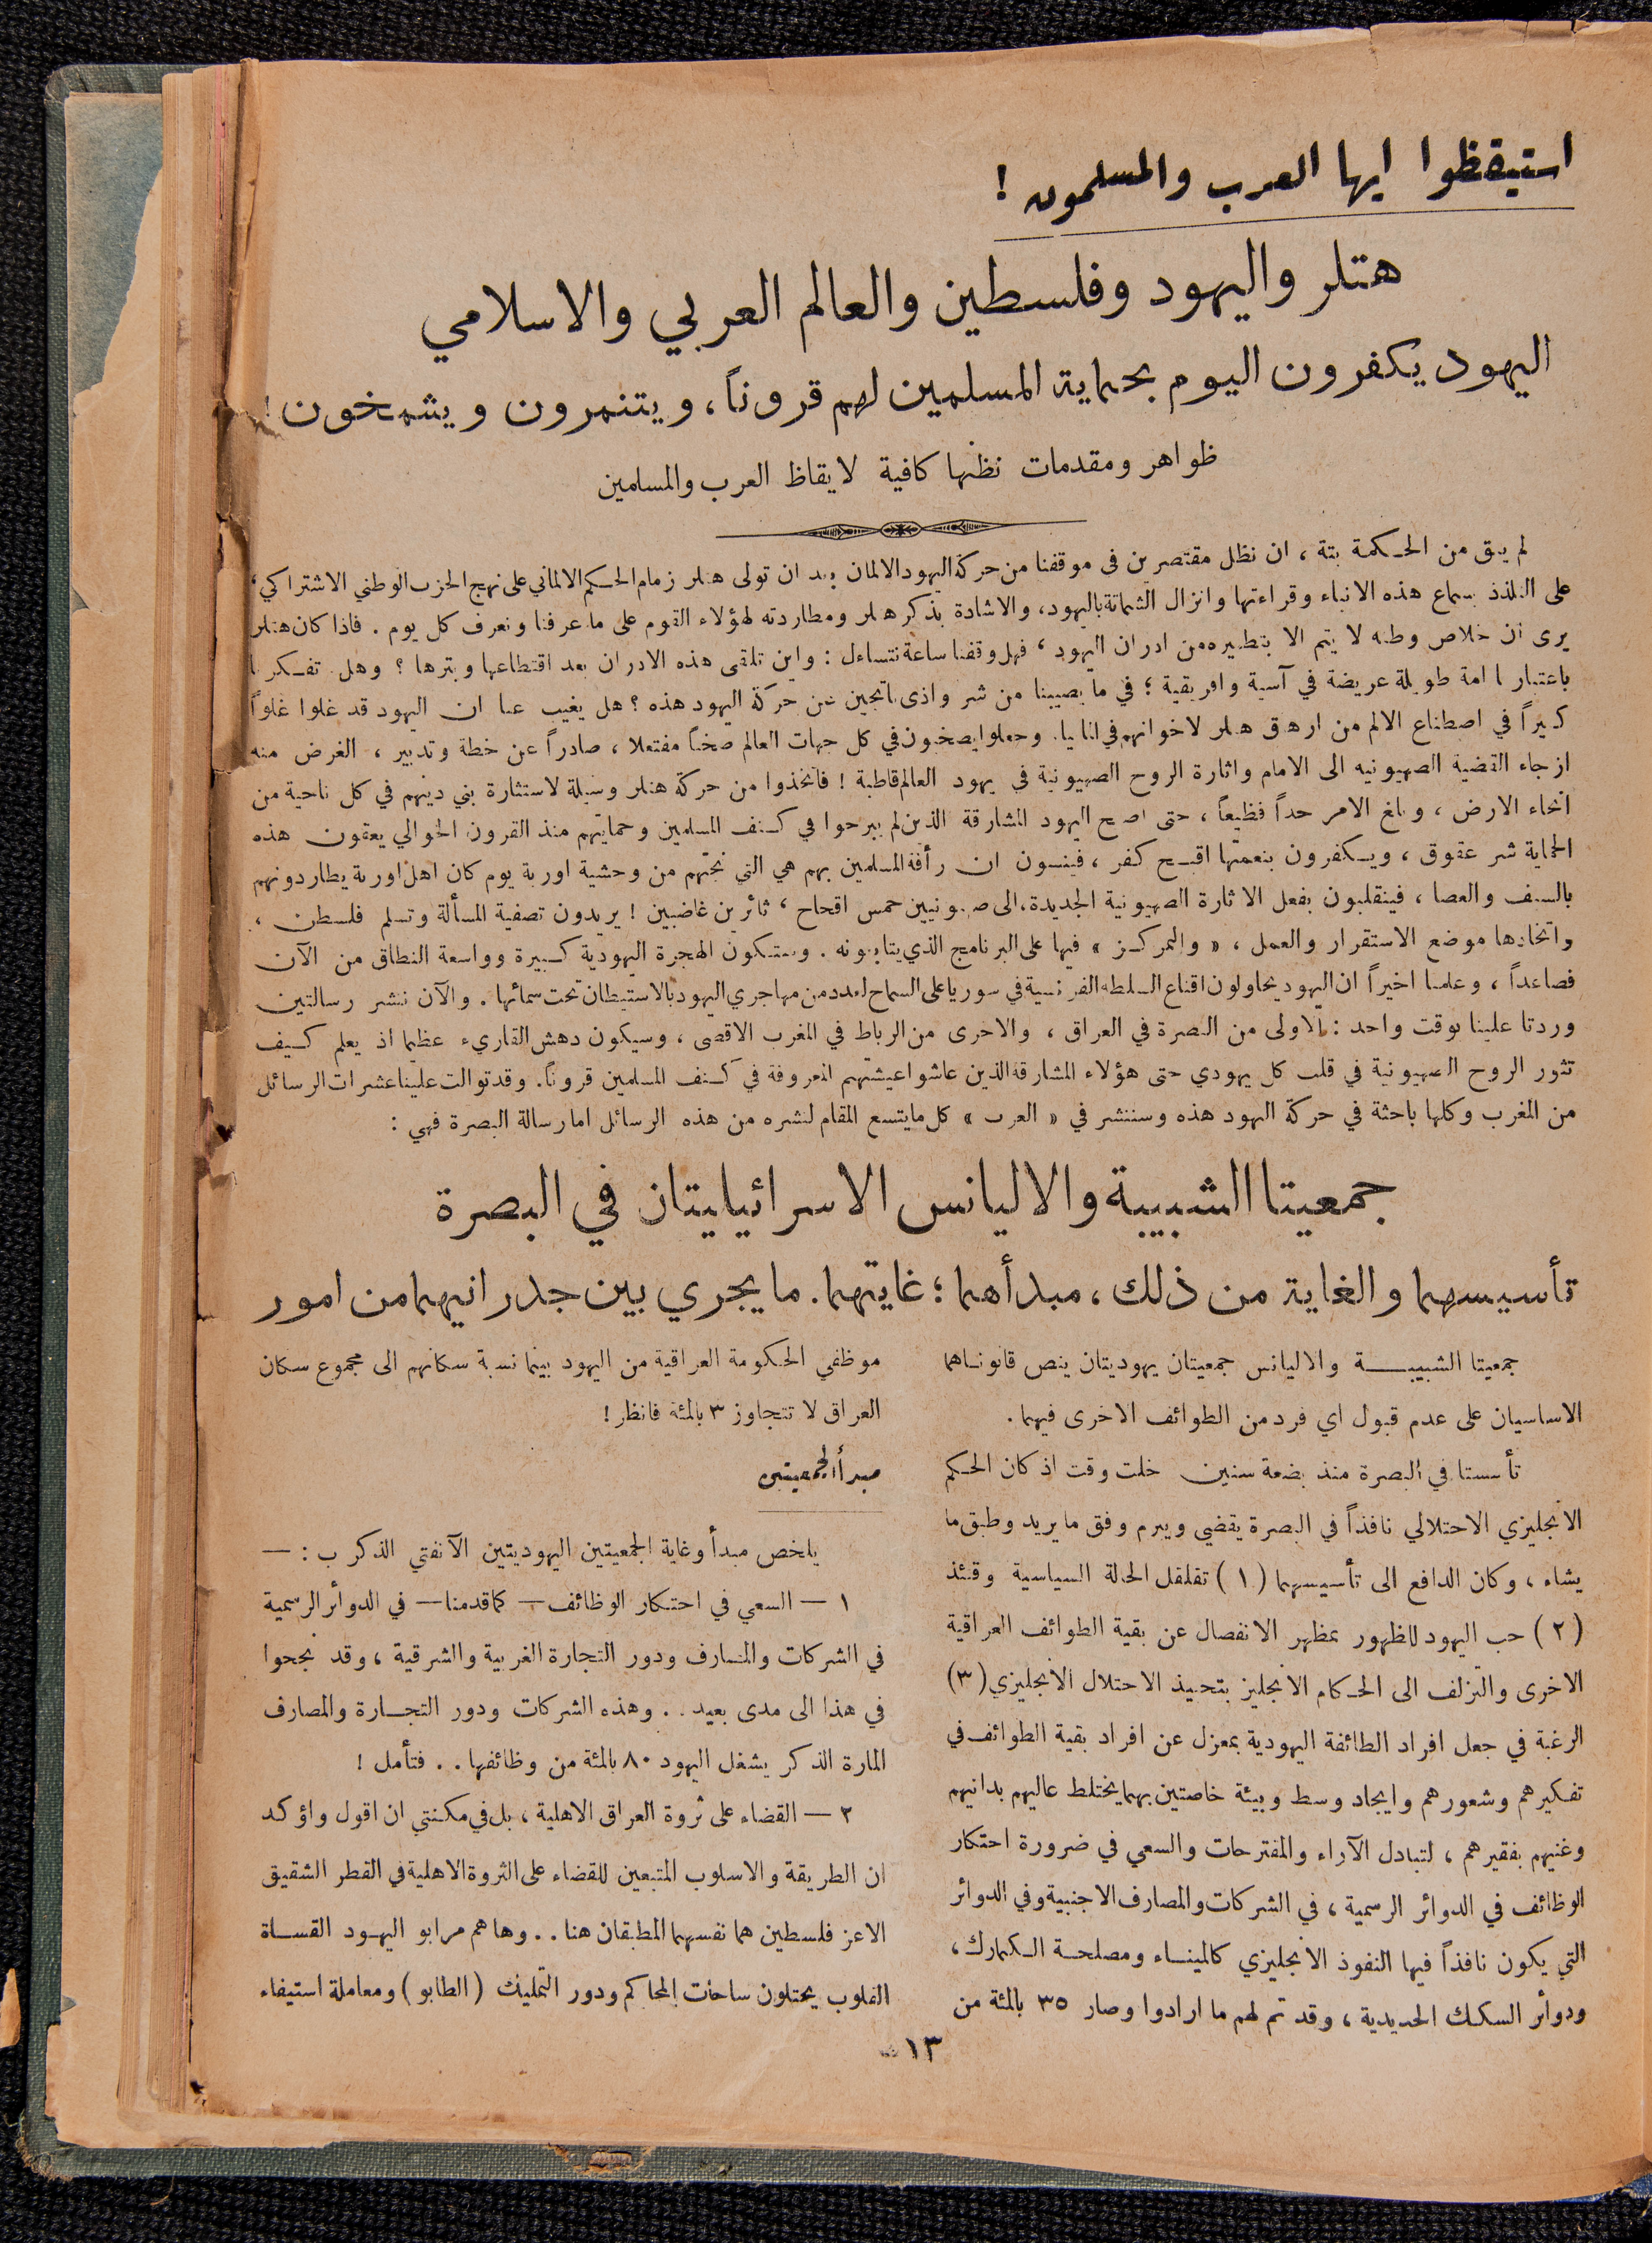 استيقظوا ايها العرب والمسلمون !
هتلر واليهود وفلسطين والعالم العربي والاسلامي
اليهود يكفرون اليوم بحماية المسلمين لهم قروناً، ويتنمرون ويشمخون !
ظواهر ومقدمات نظنها كافية لايقاظ العرب والمسلمين
لم يبق من الحكمة بتة ، ان نظل مقتصرين في موقفنا من حركة اليهود الالمان بعد ان تولى هتلر زمام الحكم الالماني على نهج الحزب الوطني الاشتراكي ،
على التلذذ بسماع هذه الانباء وقراءتها وانزال الشماتة باليهود، والاشادة بذكر هتلر ومطاردته لهؤلاء القوم على ما عرفنا ونعرف كل يوم . فاذا كان هتلر
يرى ان خلاص وطنه لا يتم الا بتطهيره من ادران اليهود ، فهل وقفنا ساعة نتساءل : واين تلقى هذه الادران بعد اقتطاعها وبترها ؟ وهل تفكرنا
باعتبارنا امة طويلة عريضة في آسية وافريقية ؛ في ما يصيبنا من شر واذى ناتجين عن حركة اليهود هذه ؟ هل يغيب عنا ان اليهود قد غلوا غلواً
كبيراً في اصطناع الالم من ارهاق هتلر لاخوانهم في المانيا. وجعلوا يصخبون في كل جهات العالم صخباً مفتعلا ، صادراً عن خطة وتدبير ، الغرض منه
ازجاء القضية الصهيونيه الى الامام واثارة الروح الصهيونية في يهود العالم قاطبة ! فاتخذوا من حركة هتلر وسيلة لاستثارة بني دينهم في كل ناحية من
انحاء الارض ، وبلغ الامر حداً فظيعاً ، حتى اصبح اليهود المشارقة الذين لم يبرحوا في كنف المسلمين وحمايتهم منذ القرون الخوالي يعقون هذه
الحماية شر عقوق ، ويكفرون بنعمتها اقبح كفر ، فينسون ان رأفة المسلمين بهم هي التي نجتهم من وحشية اوربة يوم كان اهل اوربة يطاردونهم
بالسيف والعصا ، فينقلبون بفعل الاثارة الصهيونية الجديدة، الى صهيونيين حمس اقحاح ، ثائرين غاضبين ! يريدون تصفية المسألة وتسلم فلسطين ،
واتخاذها موضع الاستقرار والعمل ، « والتمركز » فيها على البرنامج الذي يتابعونه . وستكون الهجرة اليهودية كبيرة وواسعة النطاق من الآن
فصاعداً ، وعلمنا اخيراً ان اليهود يحاولون اقناع السلطه الفرنسية في سوريا على السماح لعدد من مهاجري اليهود بالاستيطان تحت سمائها . والآن ننشر رسالتين
وردتا علينا بوقت واحد : الاولى من البصرة في العراق ، والاخرى من الرباط في المغرب الاقصى ، وسيكون دهش القاريء عظيما اذ يعلم كيف
تثور الروح الصهيونية في قلب كل يهودي حتى هؤلاء المشارقة الذين عاشوا عيشتهم المعروفة في كنف المسلمين قروناً. وقد توالت علينا عشرات الرسائل
من المغرب وكلها باحثة في حركة اليهود هذه وسننشر في « العرب » كل ما يتسع المقام لنشره من هذه الرسائل اما رسالة البصرة فهي :
جمعيتا الشبيبة والاليانس الاسرائيليتان في البصرة
تأسيسهما والغاية من ذلك ، مبدأهما ؛ غايتهما. ما يجري بين جدرانيهما من امور
جمعيتا الشبيبة والاليانس جمعيتان يهوديتان ينص قانوناهما
الاساسيان على عدم قبول اي فرد من الطوائف الاخرى فيهما .
تأسستا في البصرة منذ بضعة سنين خلت وقت اذ كان الحكم
الانجليزي الاحتلالي نافذاً في البصرة يقضي ويبرم وفق ما يريد وطبق ما
يشاء ، وكان الدافع الى تأسيسهما (١) تقلقل الحالة السياسية وقتئذ
(٢) حب اليهود للظهور بمظهر الانفصال عن بقية الطوائف العراقية
الاخرى والتزلف الى الحكام الانجليز بتحبيذ الاحتلال الانجليزي (٣)
الرغبة في جعل افراد الطائفة اليهودية بمعزل عن افراد بقية الطوائف في
تفكيرهم وشعورهم وايجاد وسط وبيئة خاصتين بهما يختلط عاليهم بدانيهم
وغنيهم بفقيرهم ، لتبادل الآراء والمقترحات والسعي في ضرورة احتكار
الوظائف في الدوائر الرسمية ، في الشركات والمصارف الاجنبية وفي الدوائر
التي يكون نافذاً فيها النفوذ الانجليزي كالميناء ومصلحة الكمارك ،
ودوائر السكك الحديدية ، وقد تم لهم ما ارادوا وصار ٣٥ بالمئة من
موظفي الحكومة العراقية من اليهود بينما نسبة سكانهم الى مجموع سكان
العراق لا تتجاوز ٣ بالمئة فانظر !
مبدأ الجمعيتين
يلخص مبدأ وغاية الجمعيتين اليهوديتين الآنفتي الذكر ب : —
١ — السعي في احتكار الوظائف — كما قدمنا — في الدوائر الرسمية
في الشركات والمصارف ودور التجارة الغربية والشرقية ، وقد نجحوا
في هذا الى مدى بعيد .. وهذه الشركات ودور التجارة والمصارف
المارة الذكر يشغل اليهود ٨٠ بالمئة من وظائفها .. فتأمل !
٢ — القضاء على ثروة العراق الاهلية ، بل في مكنتي ان اقول واؤكد
ان الطريقة والاسلوب المتبعين للقضاء على الثروة الاهلية في القطر الشقيق
الاعز فلسطين هما نفسهما المطبقان هنا .. وها هم مرابو اليهود القساة
القلوب يحتلون ساحات المحاكم ودور التمليك (الطابو) ومعاملة استيفاء
١٣